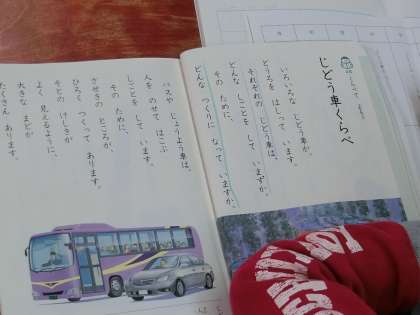 じどう車くらべ
いろいろな じどう車が、
どうろを はしって います。
それぞれの じどう車は、
どんな しごとを して いますか。
その ために、
どんな つくりに なって いますか。
バスや じょうよう車は、
人を のせて はこぶ
しごとを して います。
その ために、
ざせきの ところが、
ひろく つくって あります。
そとの けしきが
よく 見えるように、
大きな まどが
たくさん あります。